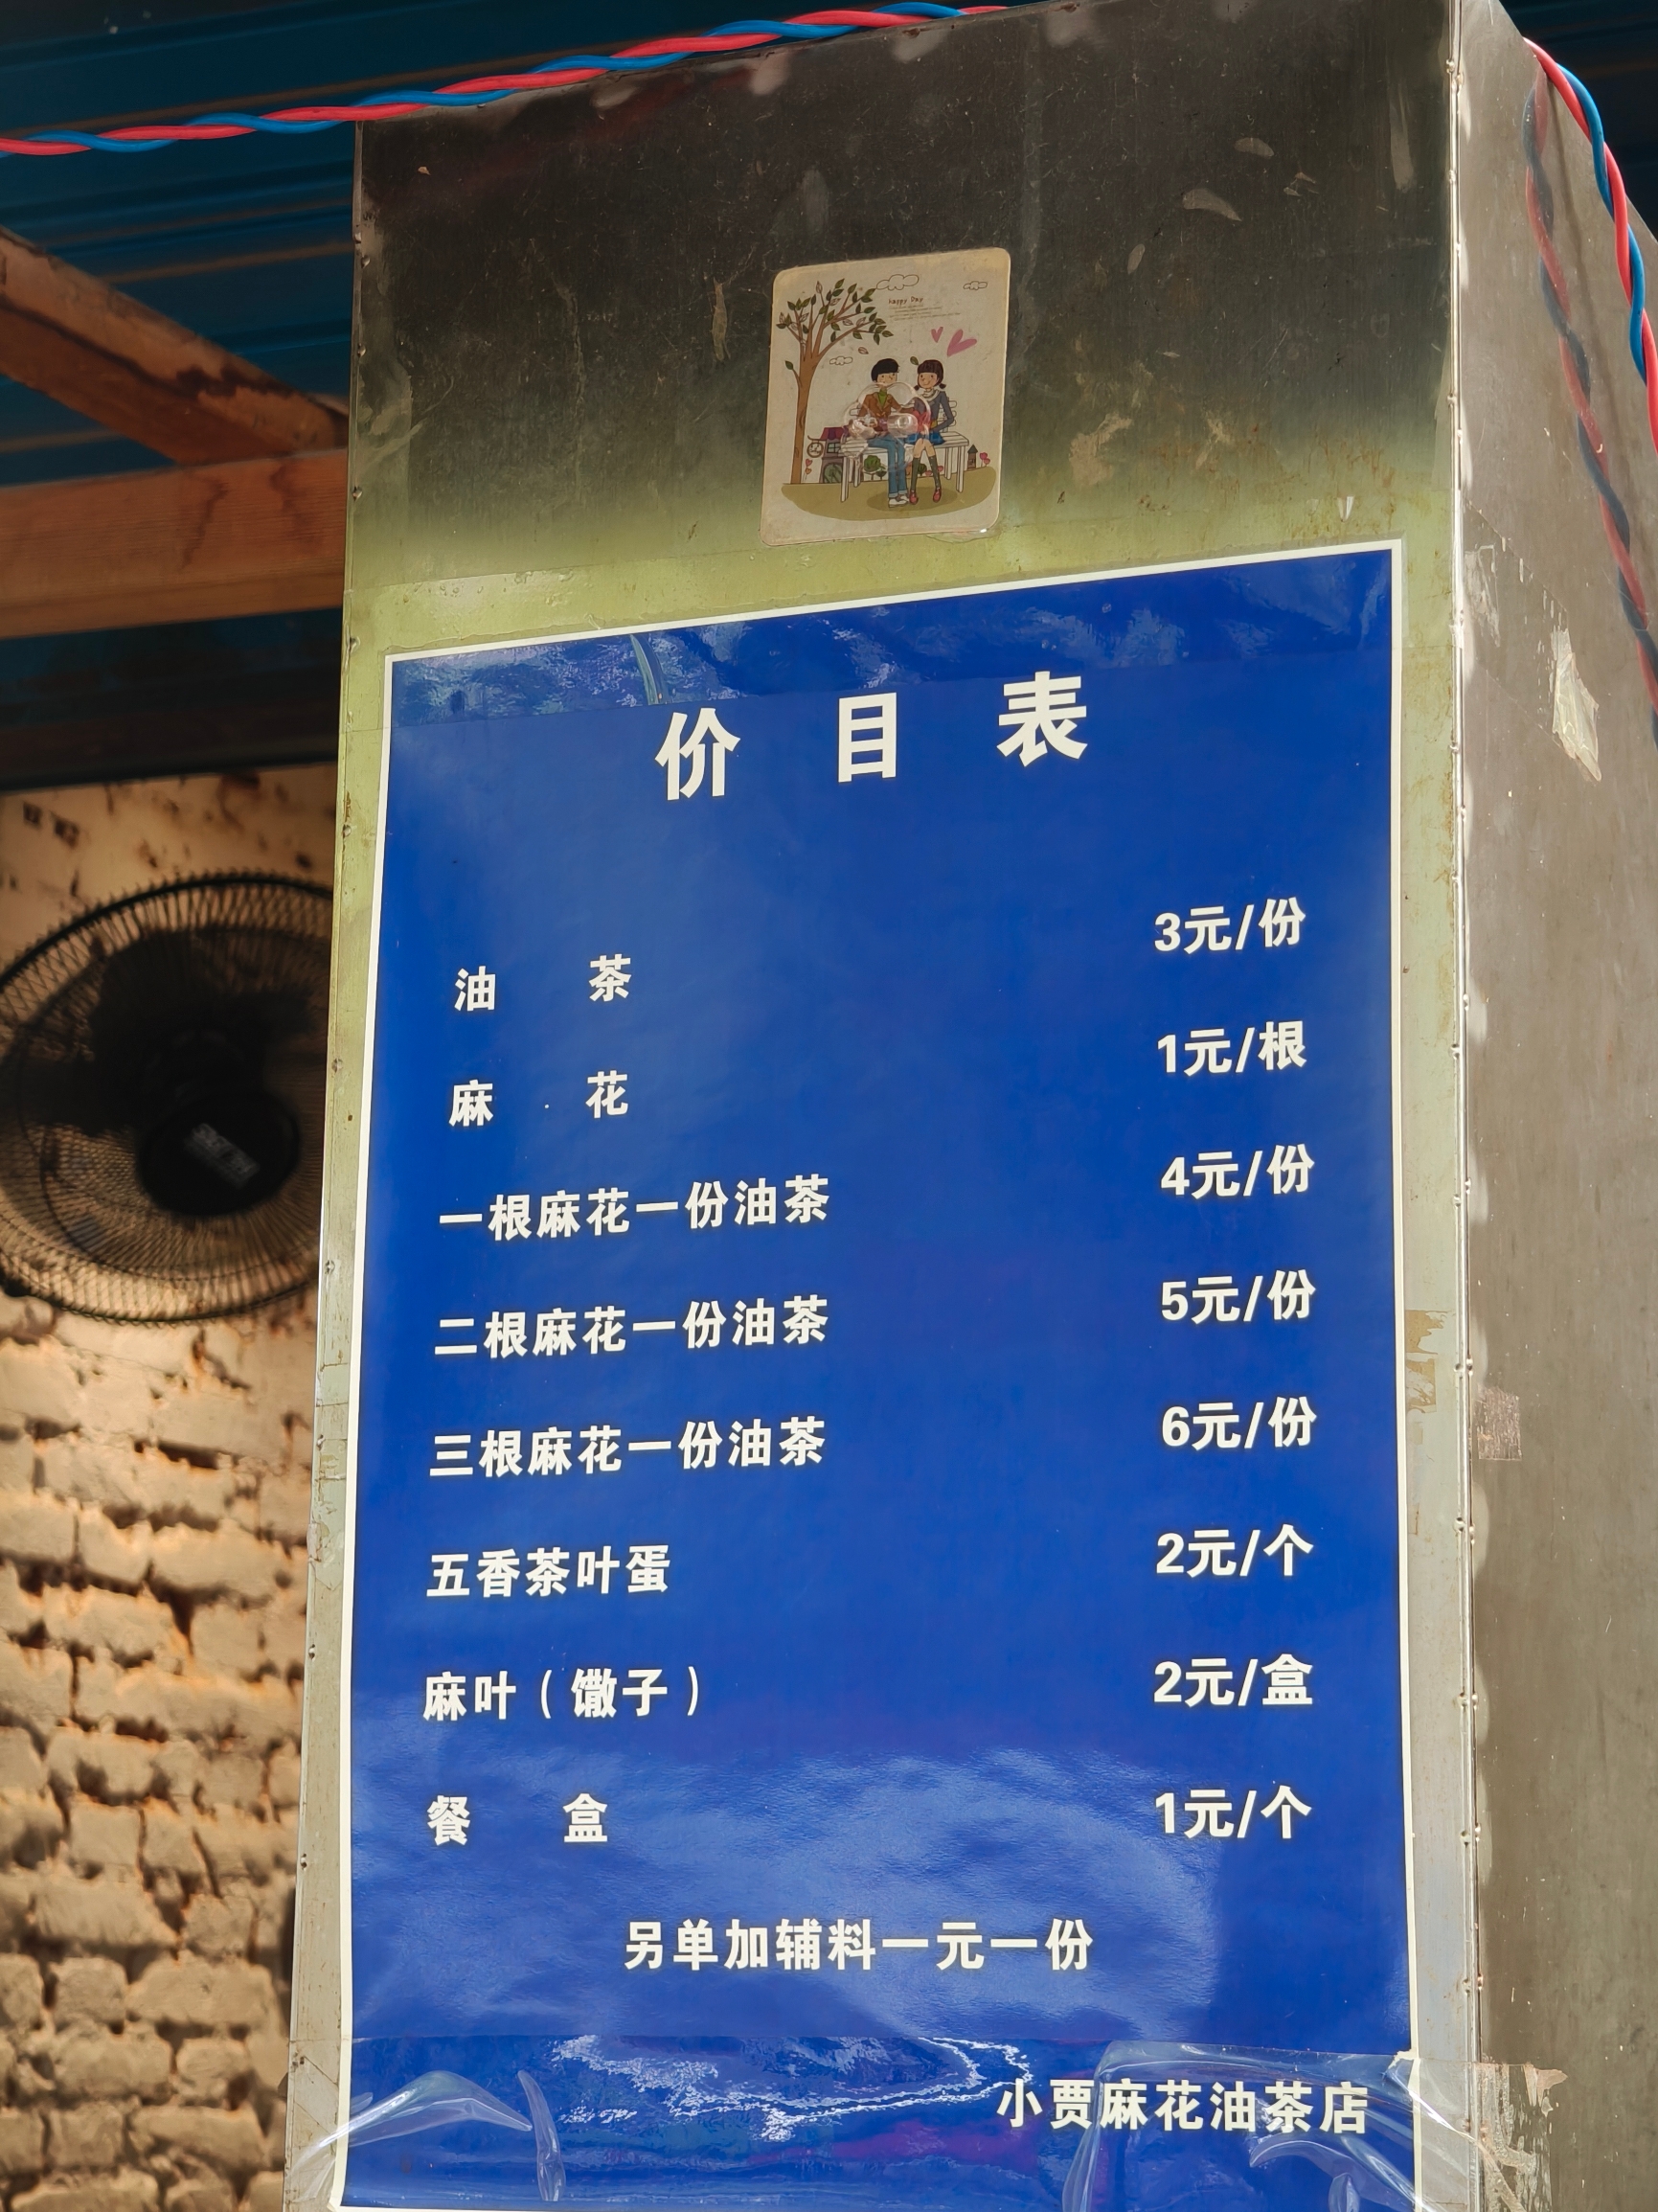 happy Day
价目表
油茶 3元/份
麻花 1元/根
一根麻花一份油茶 4元/份
二根麻花一份油茶 5元/份
三根麻花一份油茶 6元/份
五香茶叶蛋 2元/个
麻叶（馓子） 2元/盒
餐盒 1元/个
另单加辅料一元一份
小贾麻花油茶店